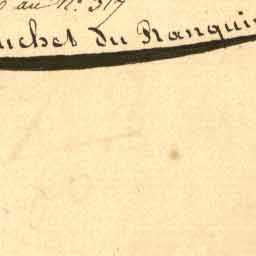 au N.º 317
uchet du Ranqui